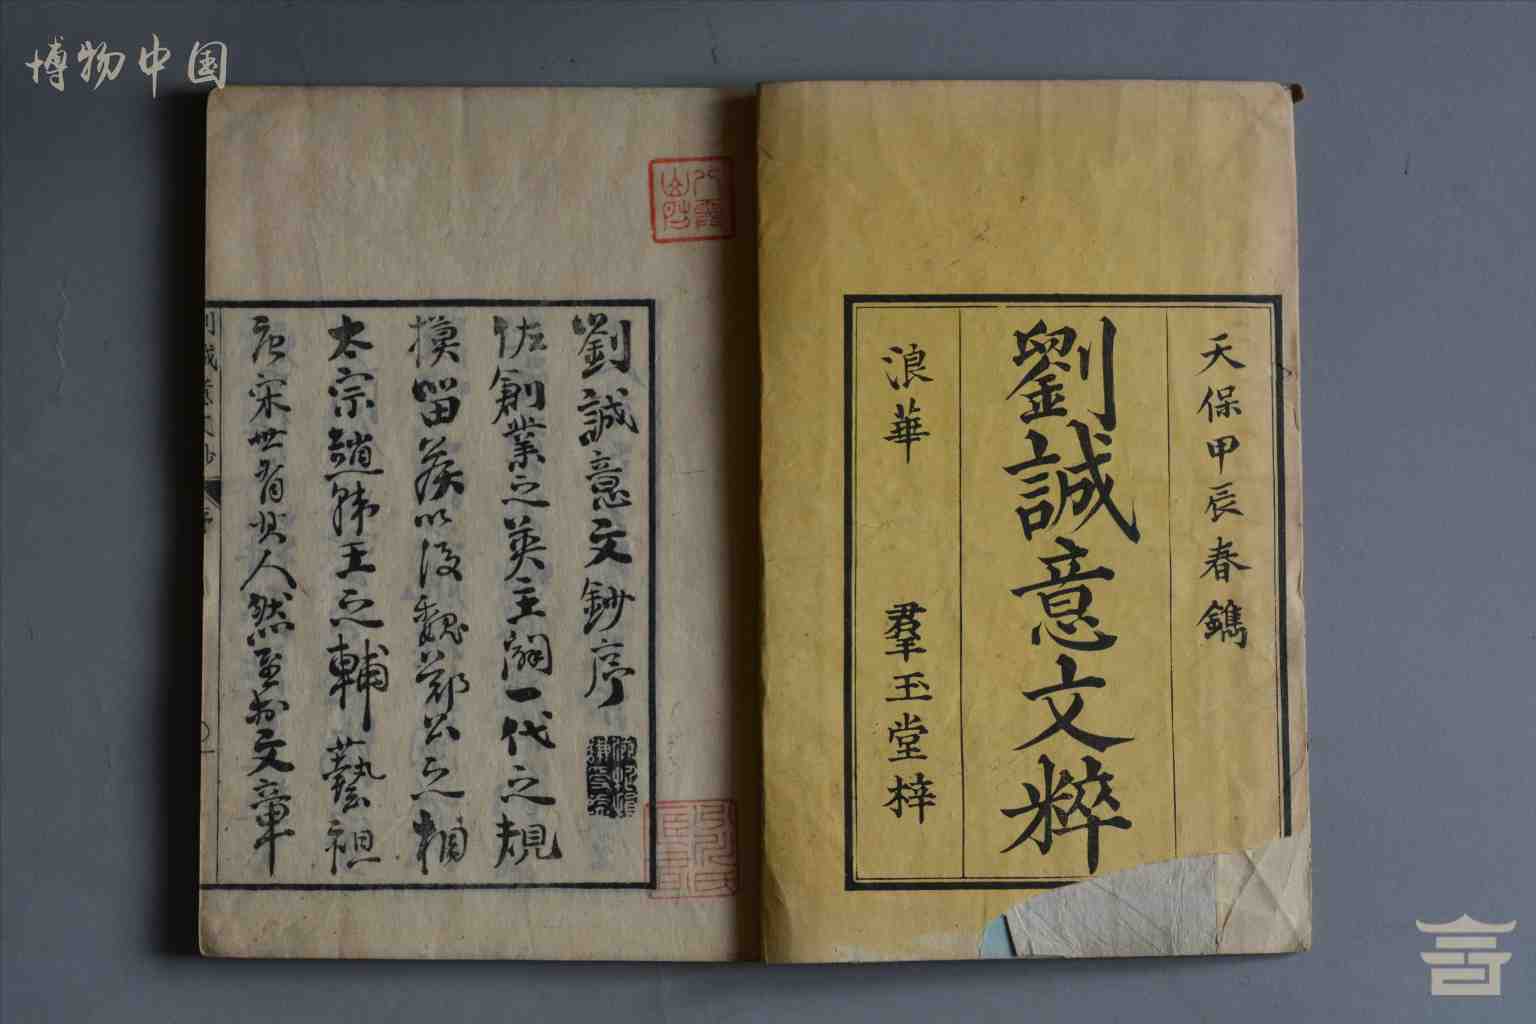 博物中国
天保甲辰春鐫
劉誠意文粹
浪華 羣玉堂梓
劉誠意文鈔序
佐創業之英主開一代之規
摸留侯以後魏鄭公之相
太宗趙韓王之輔藝祖
唐宋世有其人然至於文章